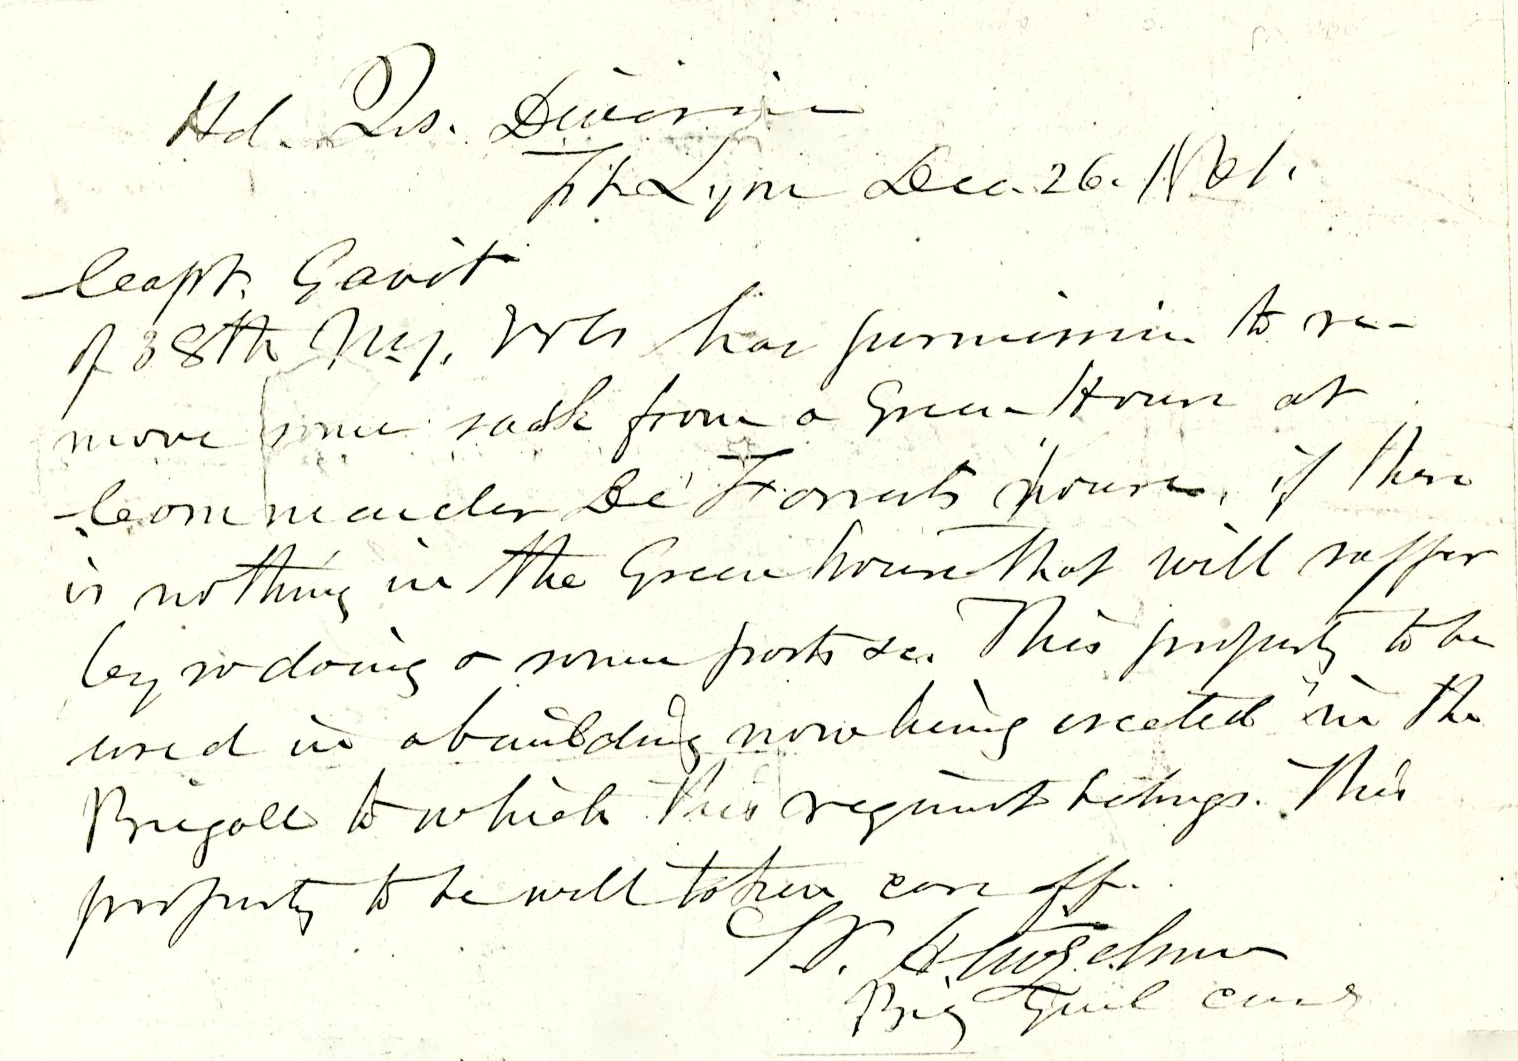 Hd. Qrs. Division
Ft. Lyon Dec. 26. 1861.
Capt. Gavit
of 38th N.Y. Vols has permission to re-
move some sash from a Green House at
Commander De Forrests house, if there
is nothing in the Green house that will suffer
by so doing a some pots &c. This property to be
used in a building now being erected in the
Brigade to which this regiment belongs. This
property to be well taken care off.
S. P. Heintzelman
Brig Genl Comg